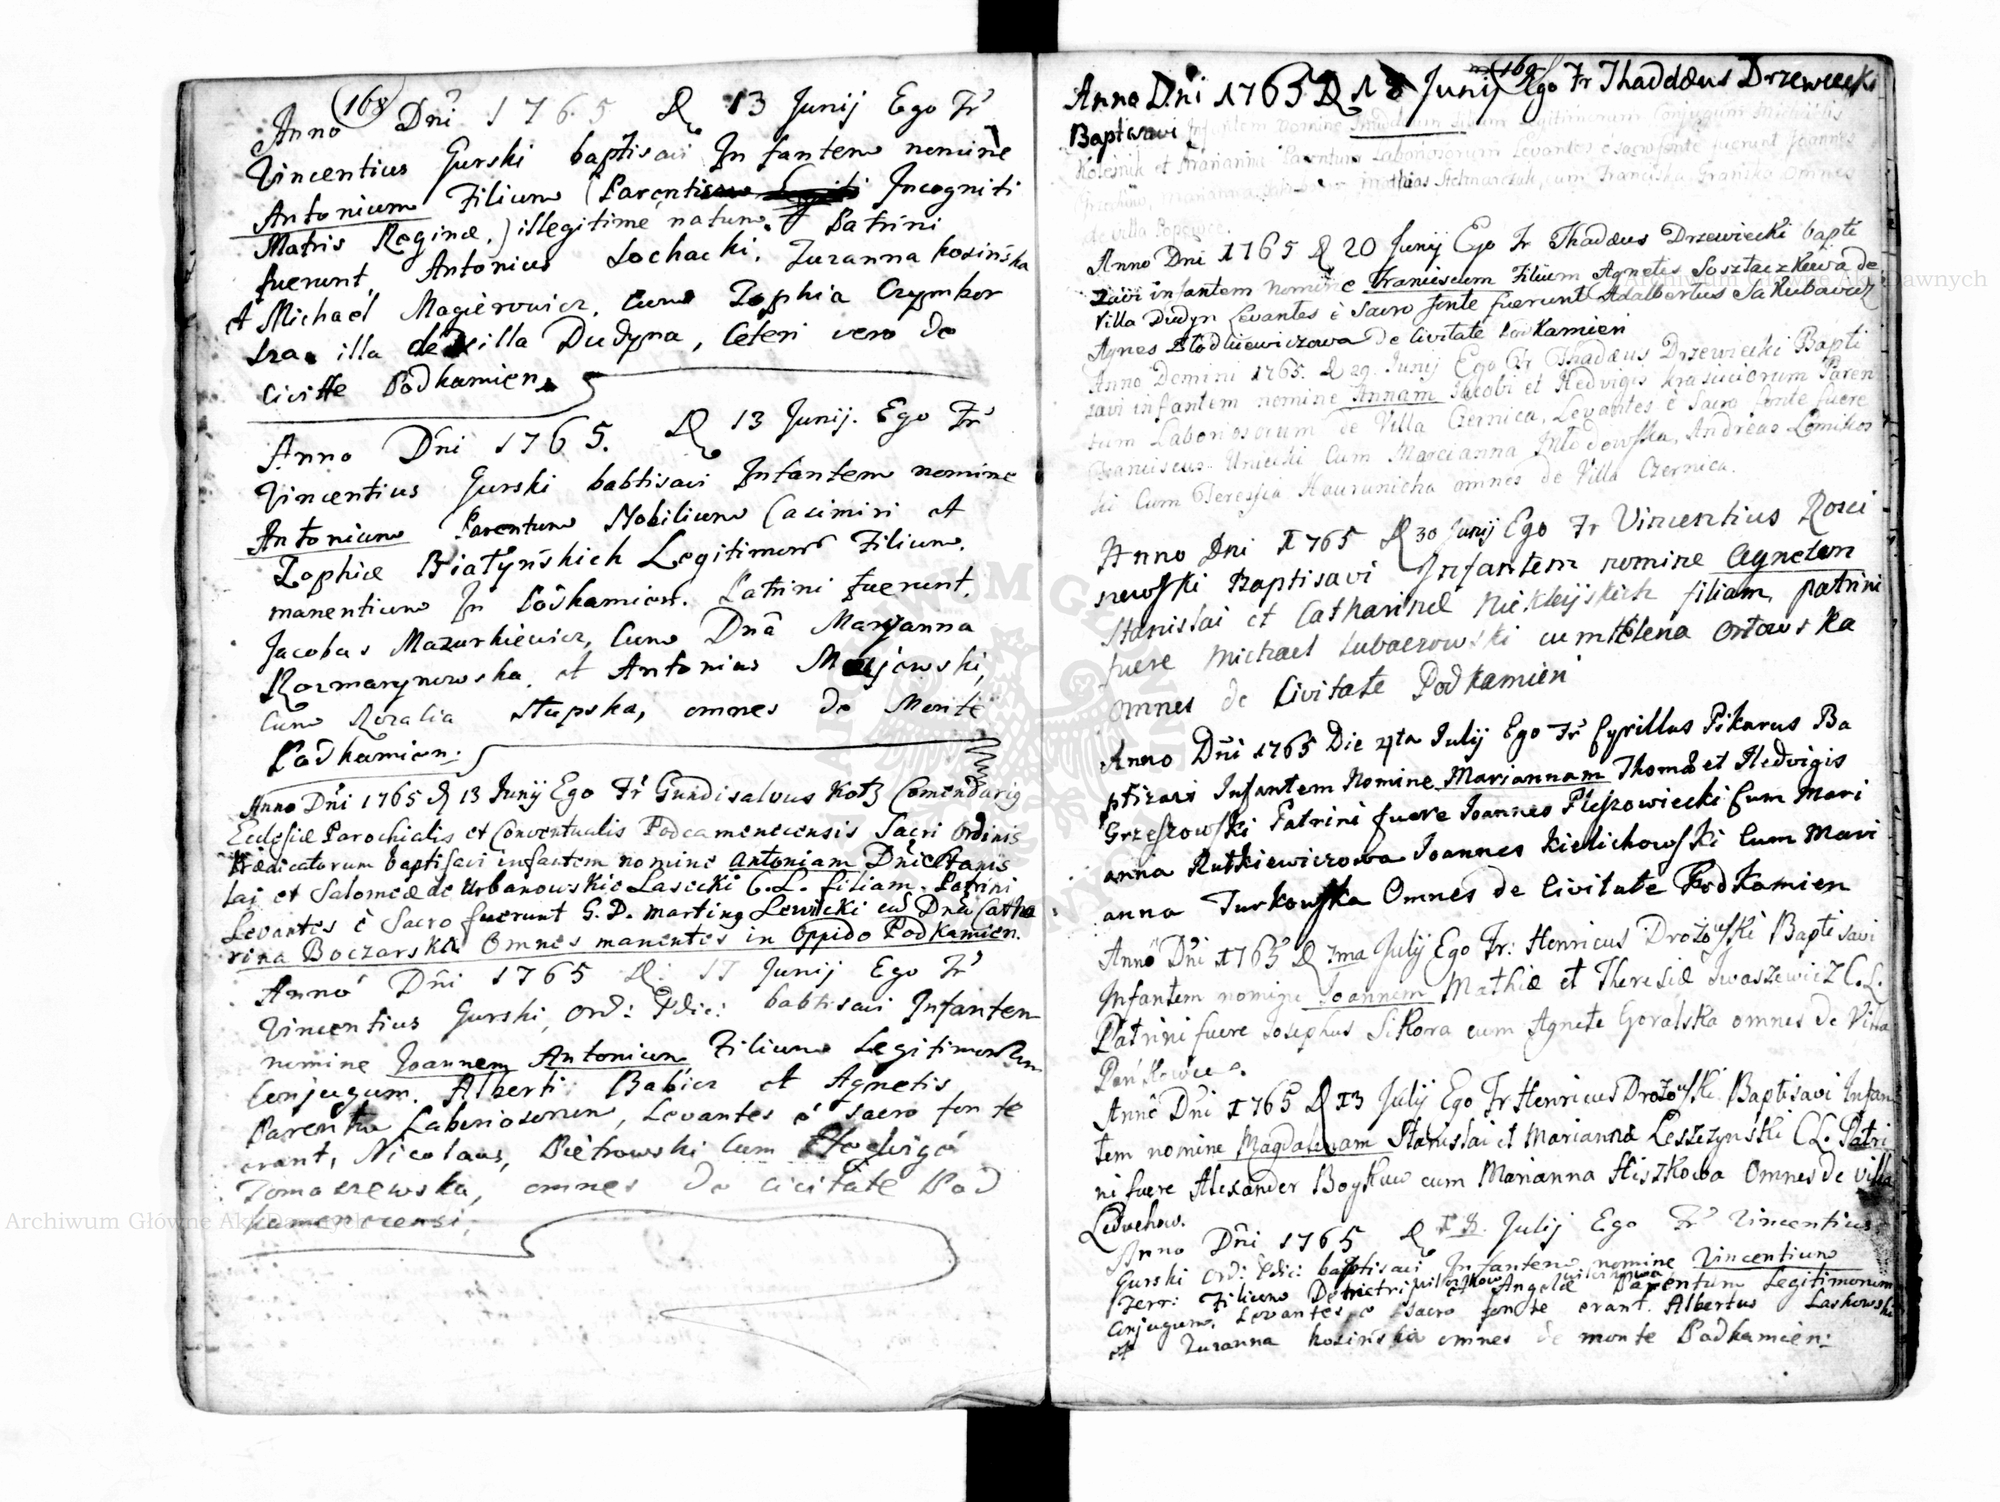 168
Anno Dni 1765 D 13 Junij Ego Fr
Vincentius Gurski baptisavi Infantem nomine
Antonium Filium (Parentis Incogniti
Matris Reginæ,) illegitimé natum. Patrini
fuerunt, Antonius Lochacki, Zuzanna Kosińska
et Michael Magierowicz, Cum Zophia Czymbor
illa de villa Dudyna, Ceteri vero de
Civitte Podkamien.
Anno Dni 1765. D 13 Junij. Ego Fr
Vincentius Gurski babtisavi Infantem nomine
Antonium Parentum Nobilium Casimiri et
Zophiæ Białyńskich Legitimorũ Filium,
manentium In Podkamien. Patrini fuerunt,
Jacobus Mazurkiewicz, Cum Dnâ Maryanna
Rozmarynowska, et Antonius Majewski,
Cum Rozalia Stupska, omnes de Monte
Podkamien.
Anno Dni 1765 D 13 Junij Ego Fr Gundisalvus Kotz Comendariq
Ecclesiæ Parochialis et Conventualis Podcamenecensis Sacri Ordinis
Prædicatorum baptisavi infantem nomine Antoniam Dni Stanis
lai et Salomeæ de Urbanowskie Lasecki C.L. filiam. Patrini
Levantes è Sacro fuerunt G.D. Martinq Lewicki cũ Dnã Catha
rina Boczarska Omnes manentes in Oppido Podkamien.
Anno Dni 1765 D. 17 Junij Ego Fr
Vincentius Gurski, Ord: Pdic: babtisavi Infantem
nomine Joannem Antonium Filium Legitimorum
Conjugum. Alberti Babicz et Agnetis
Parentũ Laboriosorum, Levantes é sacro fonte
erant, Nicolaus, Pietrowski Cum Hedvigé
Tomaszewska, omnes de civitate Pod
kamenecensi.
169
Anno Dni 1765 D 18 Junij Ego Fr Thaddæus Drzewiecki
Baptisavi Infantem nomine Filium Legitimorum Conjugum Michaelis
Kolesnik et Marianna Parentum Laboriosorum Levantes e sacro fonte fuerunt Joannes
Mathias cum Franciska omnes
de villa Popowce.
Anno Dni 1765 D 20 Junij Ego Fr Thadæus Drzewiecki bapti
zavi infantem nomine Franciscum Filium Agnetis Sosztaczkowa de
Villa Dudyn Levantes è Sacro fonte fuerunt Adalbertus Jakubowicz
Agnes Błodkiewiczowa de Civitate Podkamień
Anno Domini 1765. D 29. Junij Ego Fr Thadæus Drzewiecki Bapti
zavi infantem nomine Annam Jacobi et Hedvigis Paren
tum Laboriosorum de Villa Czernica, Levantes è Sacro fonte fuere
Franciscus Uniecki Cum Marcianna Młodowska, Andreas
Cum Teressia omnes de Villa Czernica.
Anno Dni 1765 D 30 Junij Ego Fr Vincentius Rosci
newski Baptisavi Infantem nomine Agnetem
Stanislai et Catharinæ filiam, patrini
fuere Michael Lubaczowski cum Helena Orłowska
omnes de Civitate Podkamień
Anno Dni 1765 Die 4ta Julij Ego Fr Cyrillus Pikarus Ba
ptizavi Infantem Nomine Mariannam Thomæ et Hedvigis
Grzeszowski Patrini fuere Joannes Pleszowiecki Cum Mari
anna Rutkiewiczowa Joannes Kielichowski Cum Mari
anna Turkowska Omnes de Civitate Podkamien
Anno Dni 1765 D 7ma Julij Ego Fr: Henricus Drozowski Baptisavi
Infantem nomine Joannem Mathiæ et Theresiæ Iwaszewicz C.L.
Patrini fuere Josephus Sikora cum Agnete Goralska omnes de Villa
Pańkowce.
Anno Dni 1765 D 13 Julij Ego Fr Henricus Drozowski Baptisavi Infan
tem nomine Magdalenam Stanislai et Marianna Leszczynski C.L. Patri
ni fuere Alexander Boykow cum Marianna Hiszkowa Omnes de villa
Leduchow.
Anno Dni 1765 D 18. Julij Ego Fr Vincentius
Gurski Ord: Pdic: baptisavi Infantem nomine Vincentium
Ferr: Filium Demetri et Angelæ Parentum Legitimorum
Conjugum, Levantes e sacro fonte erant. Albertus Laskowski
et Zuzanna Kosińska omnes de monte Podkamien.
Archiwum Główne Akt Dawnych
Archiwum Główne Akt Dawnych